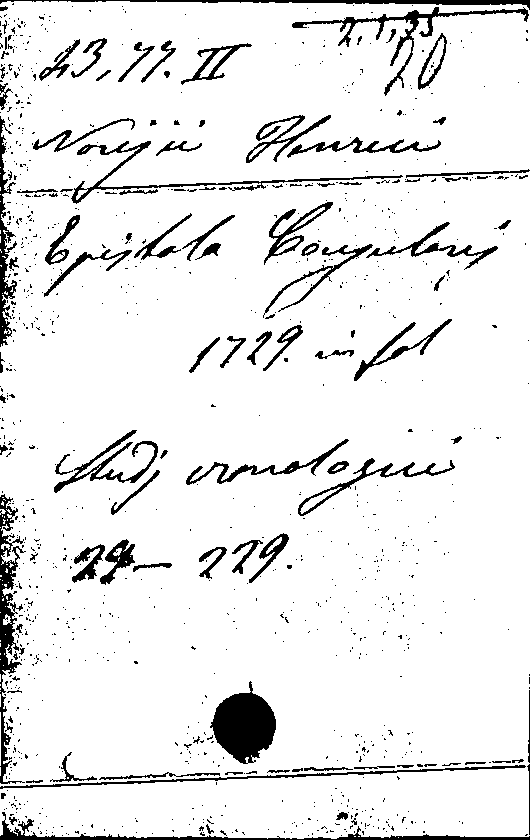 2,1,35
23,77. II 20
Norisii Henrici
Epistola Consularis
1729. in fol
Studj cronologici
29 — 229.